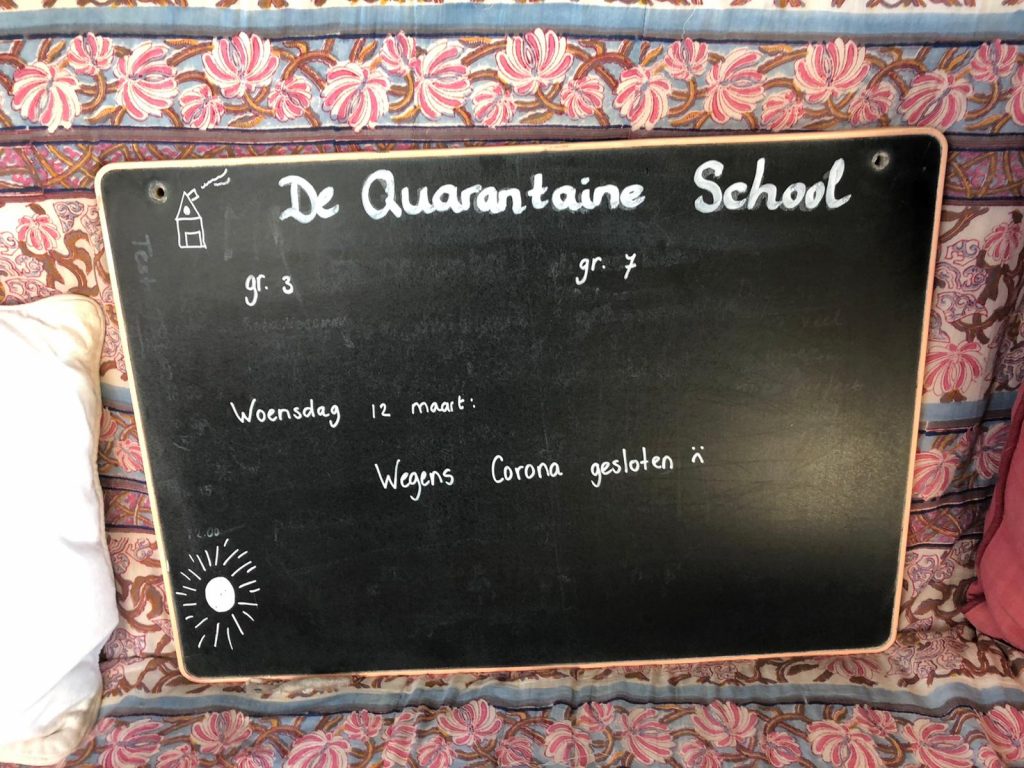 De Quarantaine School
gr. 3 gr. 7
Woensdag 12 maart:
Wegens Corona gesloten
Test